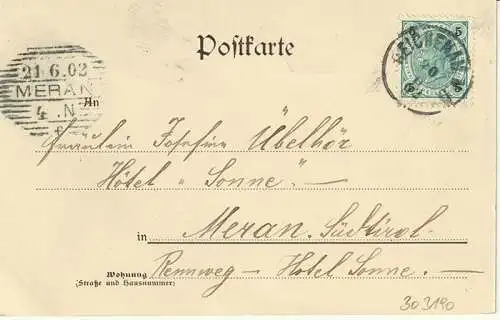 Postkarte
5
21.6.02
MERAN
4 . N
An
Fräulein Josefine Übelhör
Hôtel „Sonne". —
in Meran. Südtirol.
Rennweg — Hotel Sonne. —
Wohnung
(Straße und Hausnummer)
303190